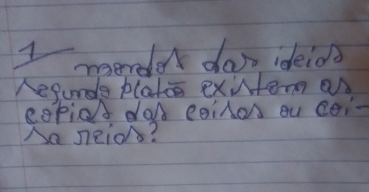 1
mondos das ideias
segundo platão existem as
copias das coisas ou coi-
sa reias?